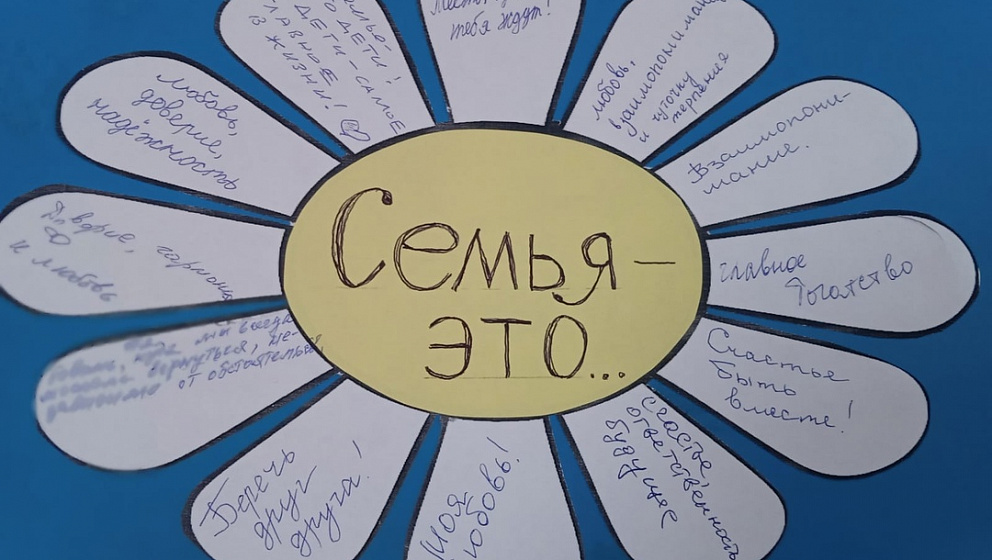 Семья –
это...
тебя ждут!
любовь,
взаимопонимание
и чуточку
терпения
Взаимопони-
мание.
главное
богатство
Счастье
быть
вместе!
Счастье,
ответственность
будущее
моя
любовь!
Беречь
друг
друга!
мы всегда
вернуться, не-
от обстоятельств
Доверие, гармония
и любовь
любовь,
доверие,
надёжность
дети!
дети – самое
главное
в жизни!